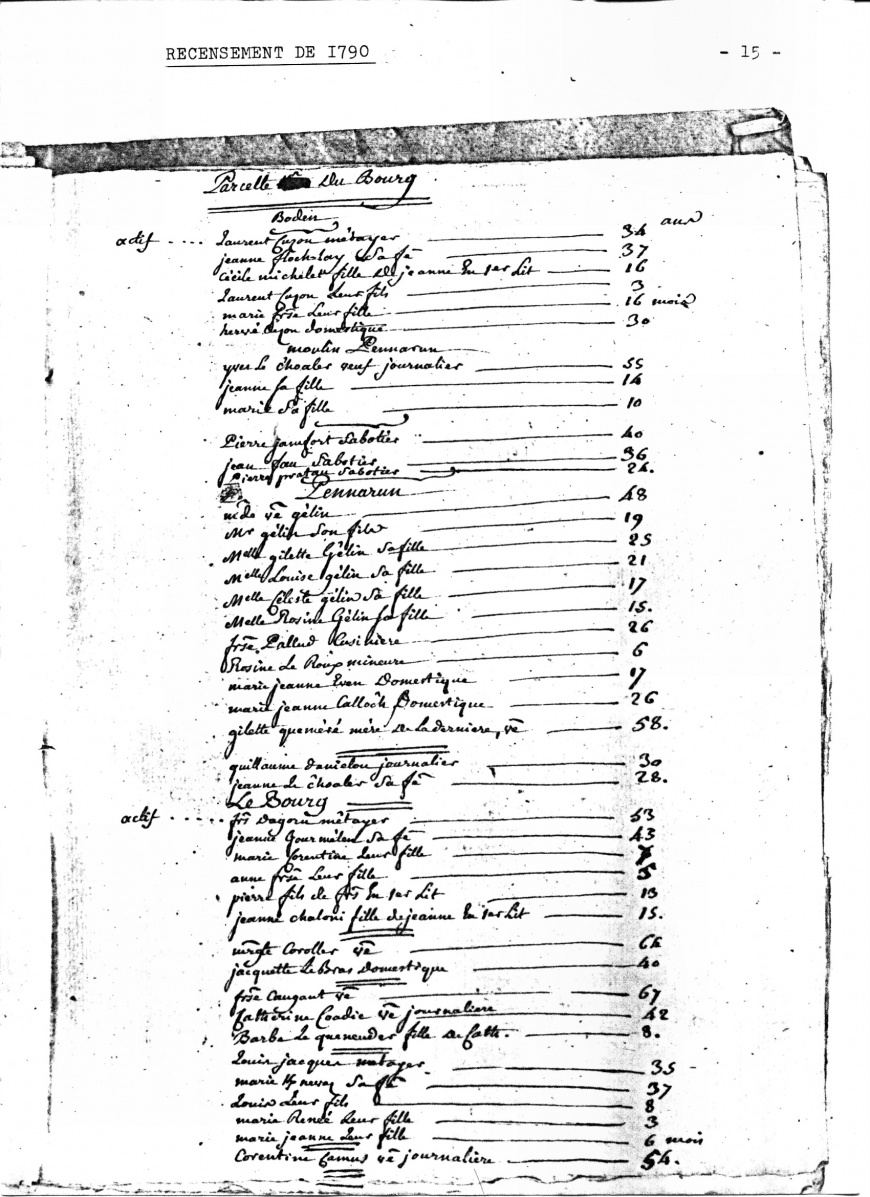 RECENSEMENT DE 1790 - 15 -
Parcelle Du Bourg
Bodin
actif .... Laurent Cuzon métayer 34 ans
jeanne floch-lay Sa fe 37
Cécile michelet fille De jeanne En 1er Lit 16
Laurent Cuzon Leur fils 3
marie frse Leur fille 16 mois
hervé Cuzon domestique 30
moulin Pennarun
yves Le choaler veuf journalier 55
jeanne Sa fille 14
marie Sa fille 10
Pierre jamfort Sabotier 40
jean fau Sabotier 36
Pierre Sabotier 24.
Pennarun
mde ve gélin 48
Mr gélin Son fils 19
Melle gilette Gélin Sa fille 25
Melle Louise gélin Sa fille 21
Melle Céleste gélin Sa fille 17
Melle Rosine Gélin Sa fille 15.
frse Pallud Cusiniere 26
Rosine Le Roux mineure 6
marie jeanne Even Domestique 17
marie jeanne Callôch Domestique 26
gilette queméré mére De La derniere, ve 58.
guillaume danielou journalier 30
jeanne Le choaler Sa fe 28.
Le Bourg
actif ..... frs Dagorn métayer 53
jeanne Gourmélen Sa fe 43
marie Corentine Leur fille 7
anne frse Leur fille 5
pierre fils de frs En 1er Lit 13
jeanne chaloni fille de jeanne En 1er Lit 15.
mrgte Coroller ve 64
jacquette Le Bras Domestique 40
frse Caugant ve 67
Catherine Coadic ve journaliere 42
Barbe Le queneuder fille De Cath. 8.
Louis jacques métayer 35
marie Sa fe 37
Louis Leur fils 8
marie Renée Leur fille 3
marie jeanne Leur fille 6 mois
Corentine Camus ve journalière 54.